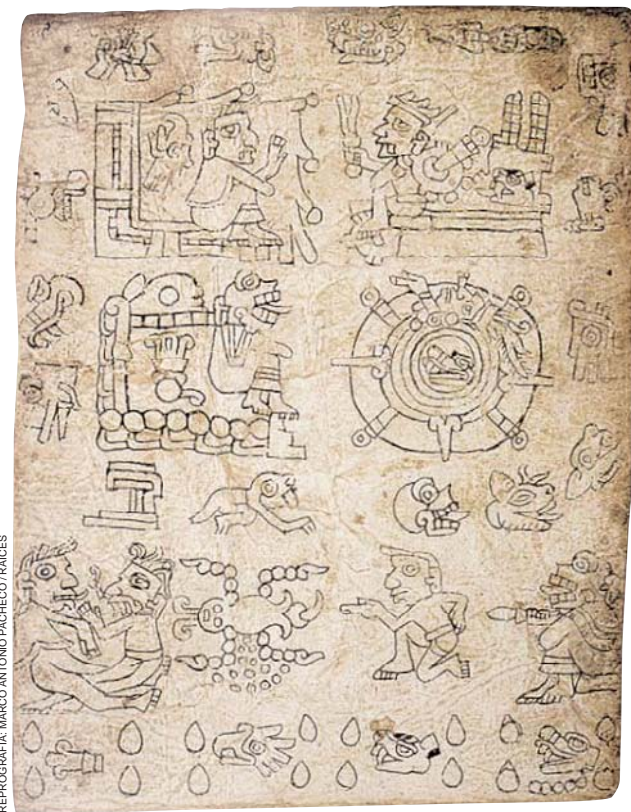 REPROGRAFÍA: MARCO ANTONIO PACHECO / RAÍCES